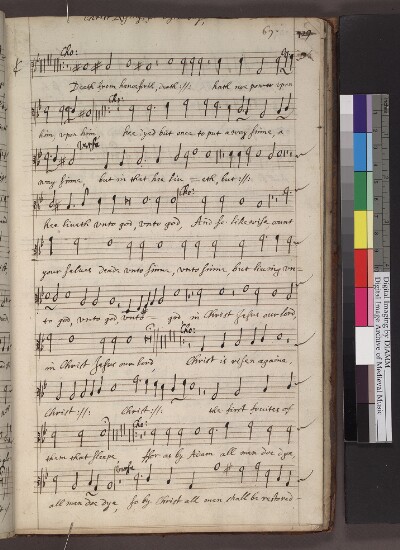 67.
Cho:
Death from henceforth, death :||: hath noe power upon
Cho:
him upon him hee dyed but once to put away sinne, a
Verse
away sinne, but in that hee liv = eth, but :||:
Cho:
hee liveth vnto god, vnto god, And so likewise count
your selves dead vnto sinne, vnto sinne, but living vn=
Cho:
to god, vnto god, vnto god in Christ Jesus our lord,
in Christ Jesus our lord, Christ is risen againe,
Christ :||: Christ :||: the first fruites of
Cho:
them that sleepe, ffor as by Adam all men doe dye,
Verse
all men doe dye, so by Christ all men shall be restored
Digital Imaging by DIAMM
Digital Image Archive of Medieval Music